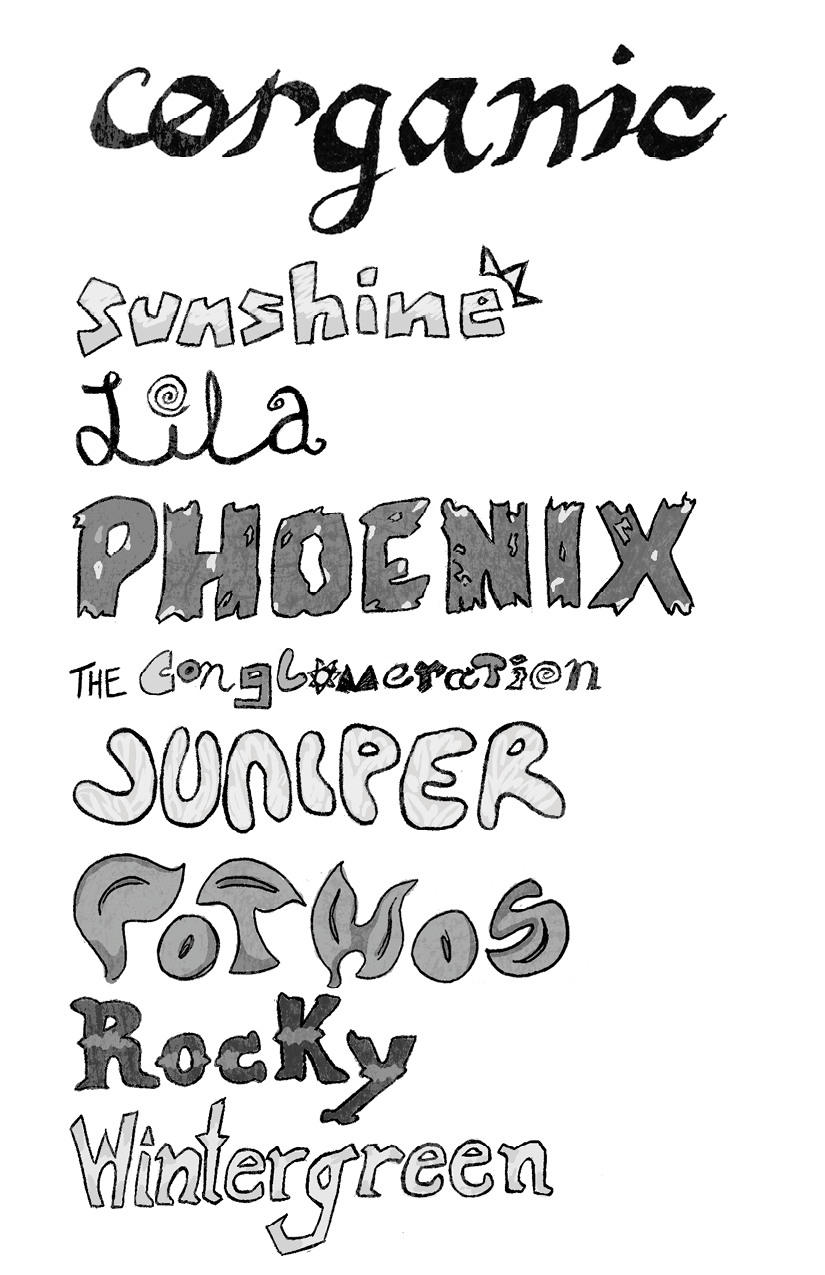 corganic
sunshine
Lila
PHOENIX
THE Conglomeration
JUNIPER
POTHOS
Rocky
Wintergreen